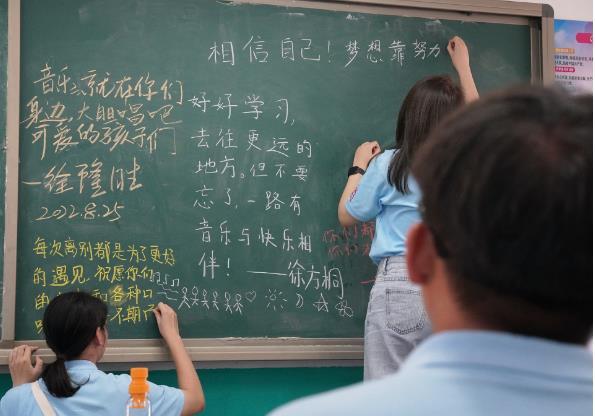 相信自己！梦想靠努力
音乐就在你们
身边，大胆唱吧
可爱的孩子们
—徐隆胜
2022.8.25
好好学习，
去往更远的
地方。但不要
忘了，一路有
音乐与快乐相
伴！——徐方桐
你们都
每次离别都是为了更好
的遇见，祝愿你们
和各种
不期